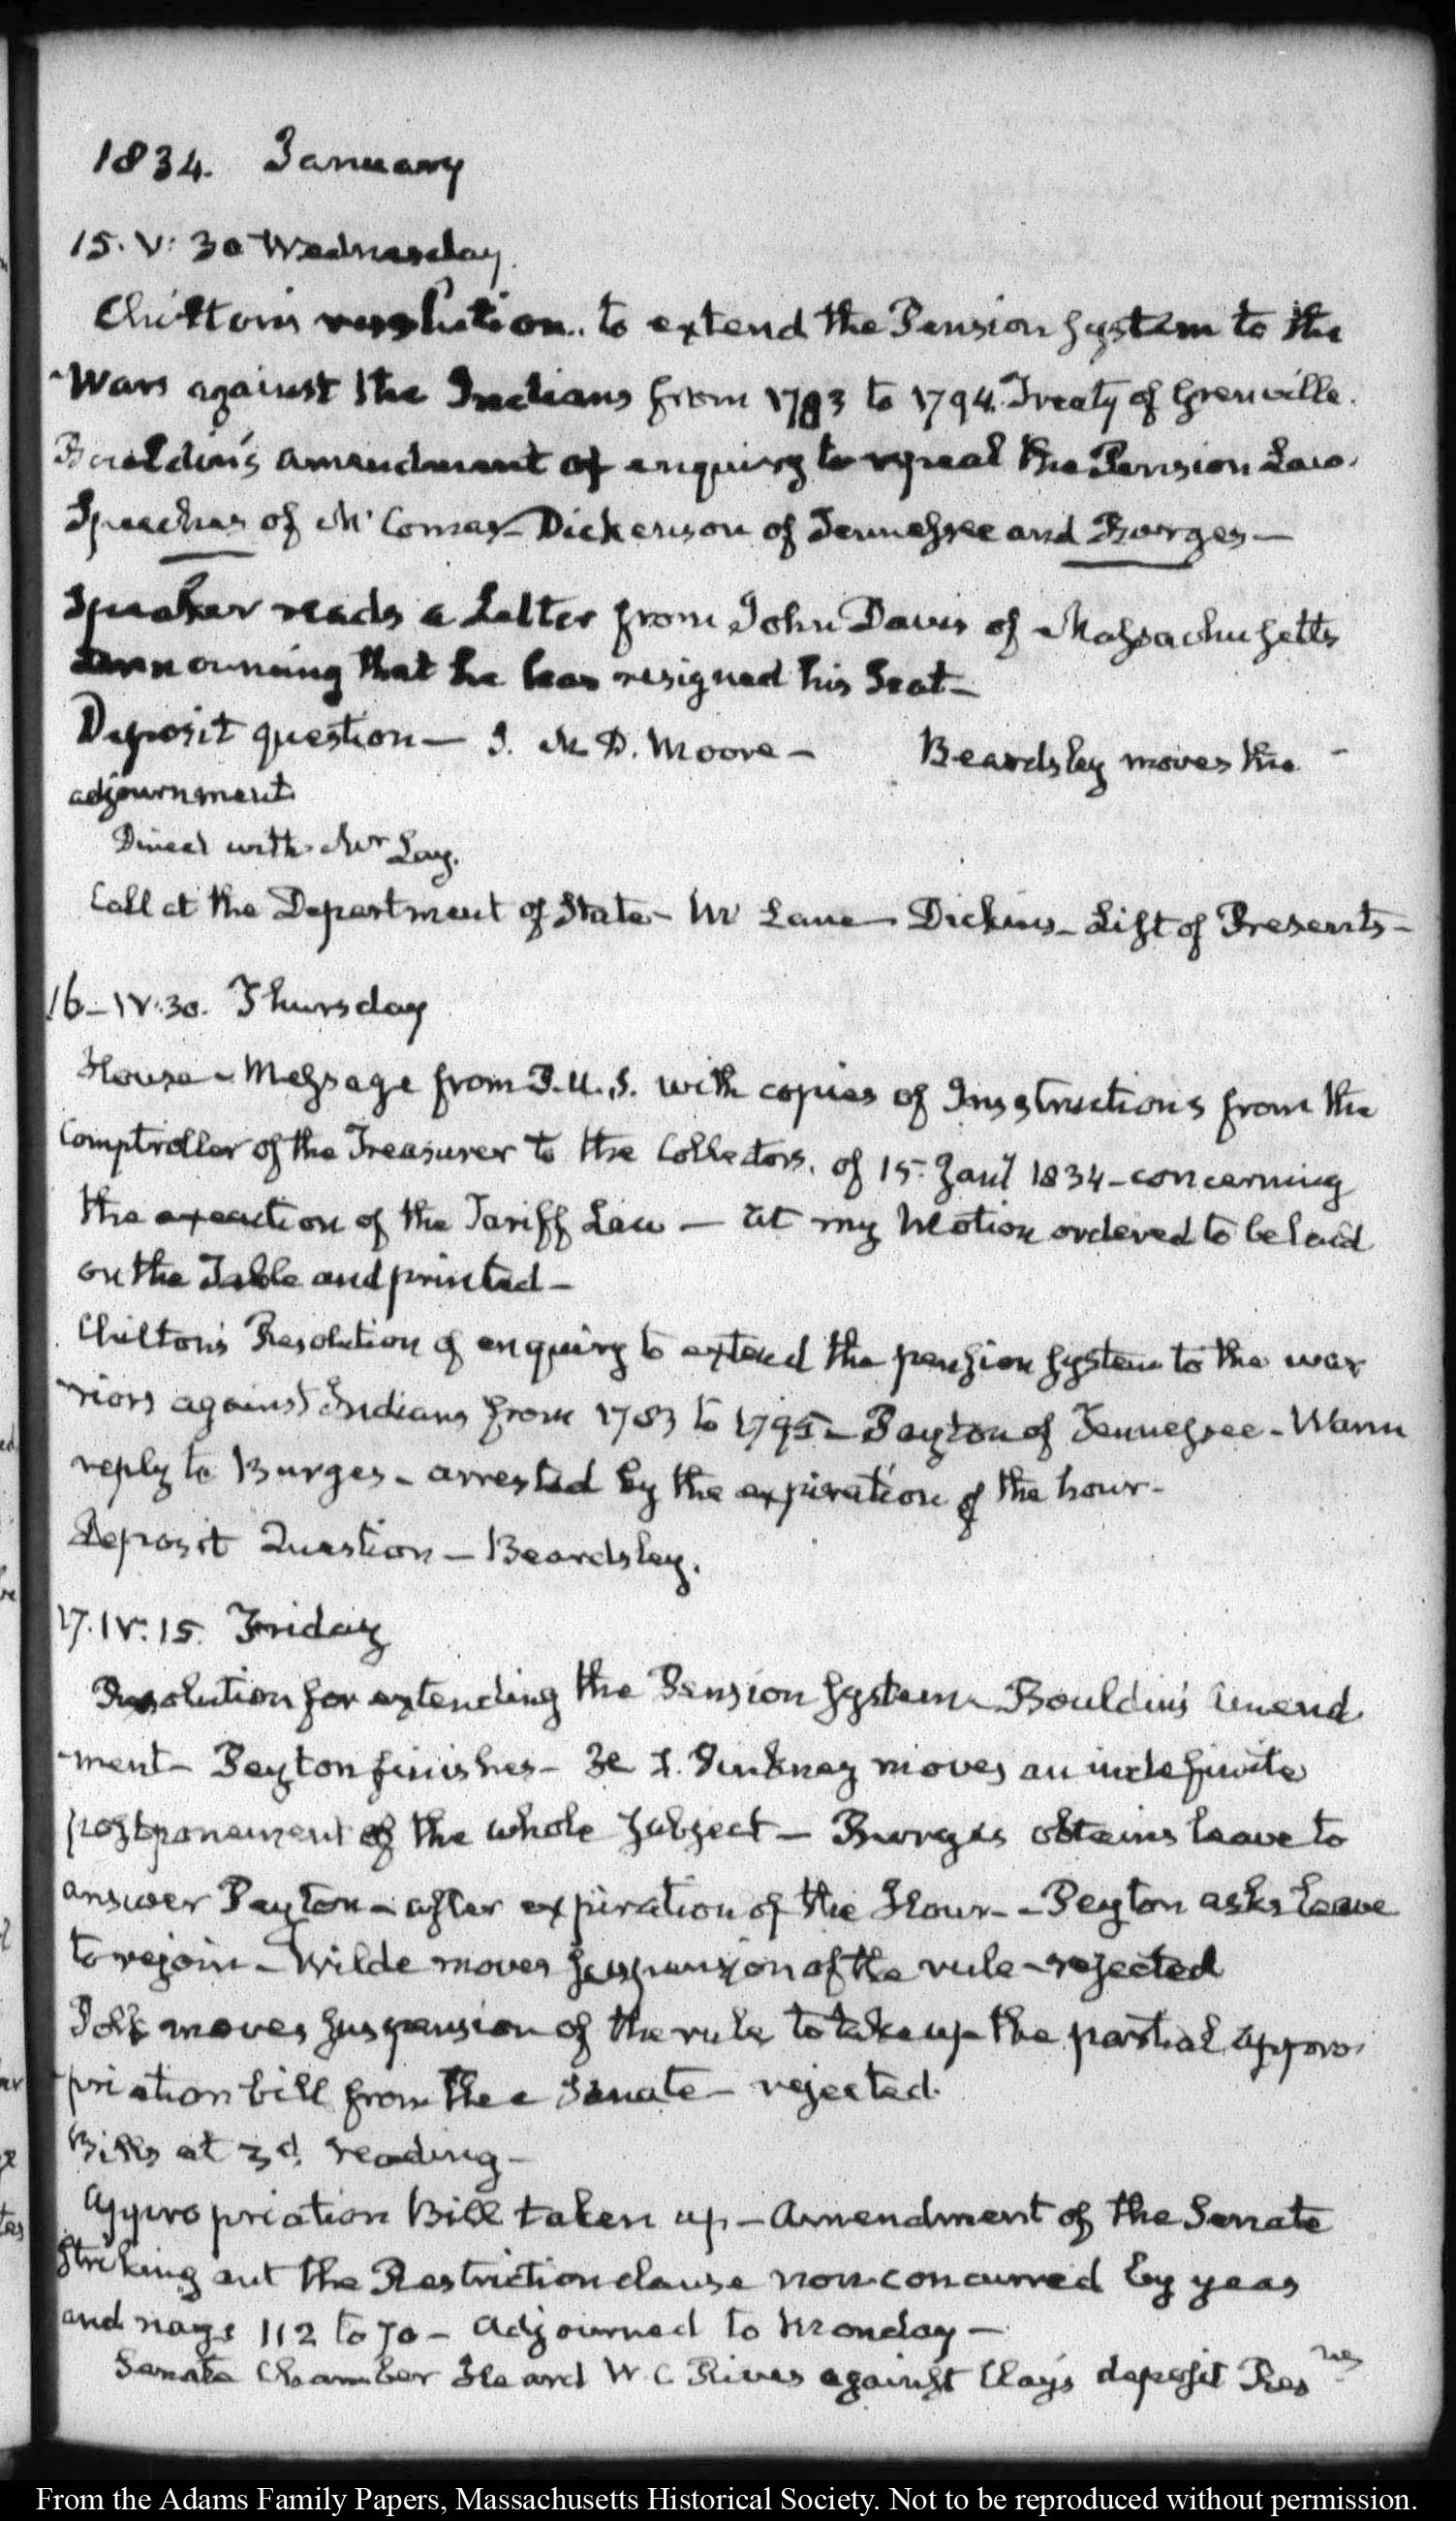 1834. January
15. V: 30 Wednesday.
Chilton's resolution.. to extend the Pension System to the
Wars against the Indians from 1783 to 1794. Treaty of Grenville.
Bouldin's amendment of enquiry to repeal the Pension Law.
Speeches of McComas - Dickerson of Tennessee and Burges —
Speaker reads a Letter from John Davis of Massachusetts
announcing that he has resigned his Seat —
Deposit question — S. McD. Moore — Beardsley moves the -
adjournment
Dined with Mr Lay.
Call at the Department of State - Mc Lane — Dickins - List of Presents -
16 - IV:30. Thursday
House - Message from P.U.S. with copies of Instructions from the
Comptroller of the Treasurer to the Collectors, of 15. Jany 1834 - concerning
the execution of the Tariff Law — at my Motion ordered to be laid
on the Table and printed -
Chilton's Resolution of enquiry to extend the pension system to the war
riors against Indians from 1783 to 1795 - Peyton of Tennessee - Warm
reply to Burges - arrested by the expiration of the hour -
Deposit Question — Beardsley.
17. IV: 15. Friday
Resolution for extending the Pension System - Bouldin's Amend
-ment - Peyton finishes - H. L. Pinkney moves an indefinite
postponement of the whole subject — Burges obtains leave to
answer Peyton - after expiration of the Hour - - Peyton asks leave
to rejoin - Wilde moves suspension of the rule - rejected
Polk moves suspension of the rule to take up the partial appro
-priation bill from the Senate - rejected.
Bills at 3d. reading -
Appropriation Bill taken up - Amendment of the Senate
striking out the Restriction clause nonconcurred by yeas
and nays 112 to 70 - Adjourned to Monday —
Senate Chamber Heard W. C. Rives against Clay's deposit Resns
From the Adams Family Papers, Massachusetts Historical Society. Not to be reproduced without permission.